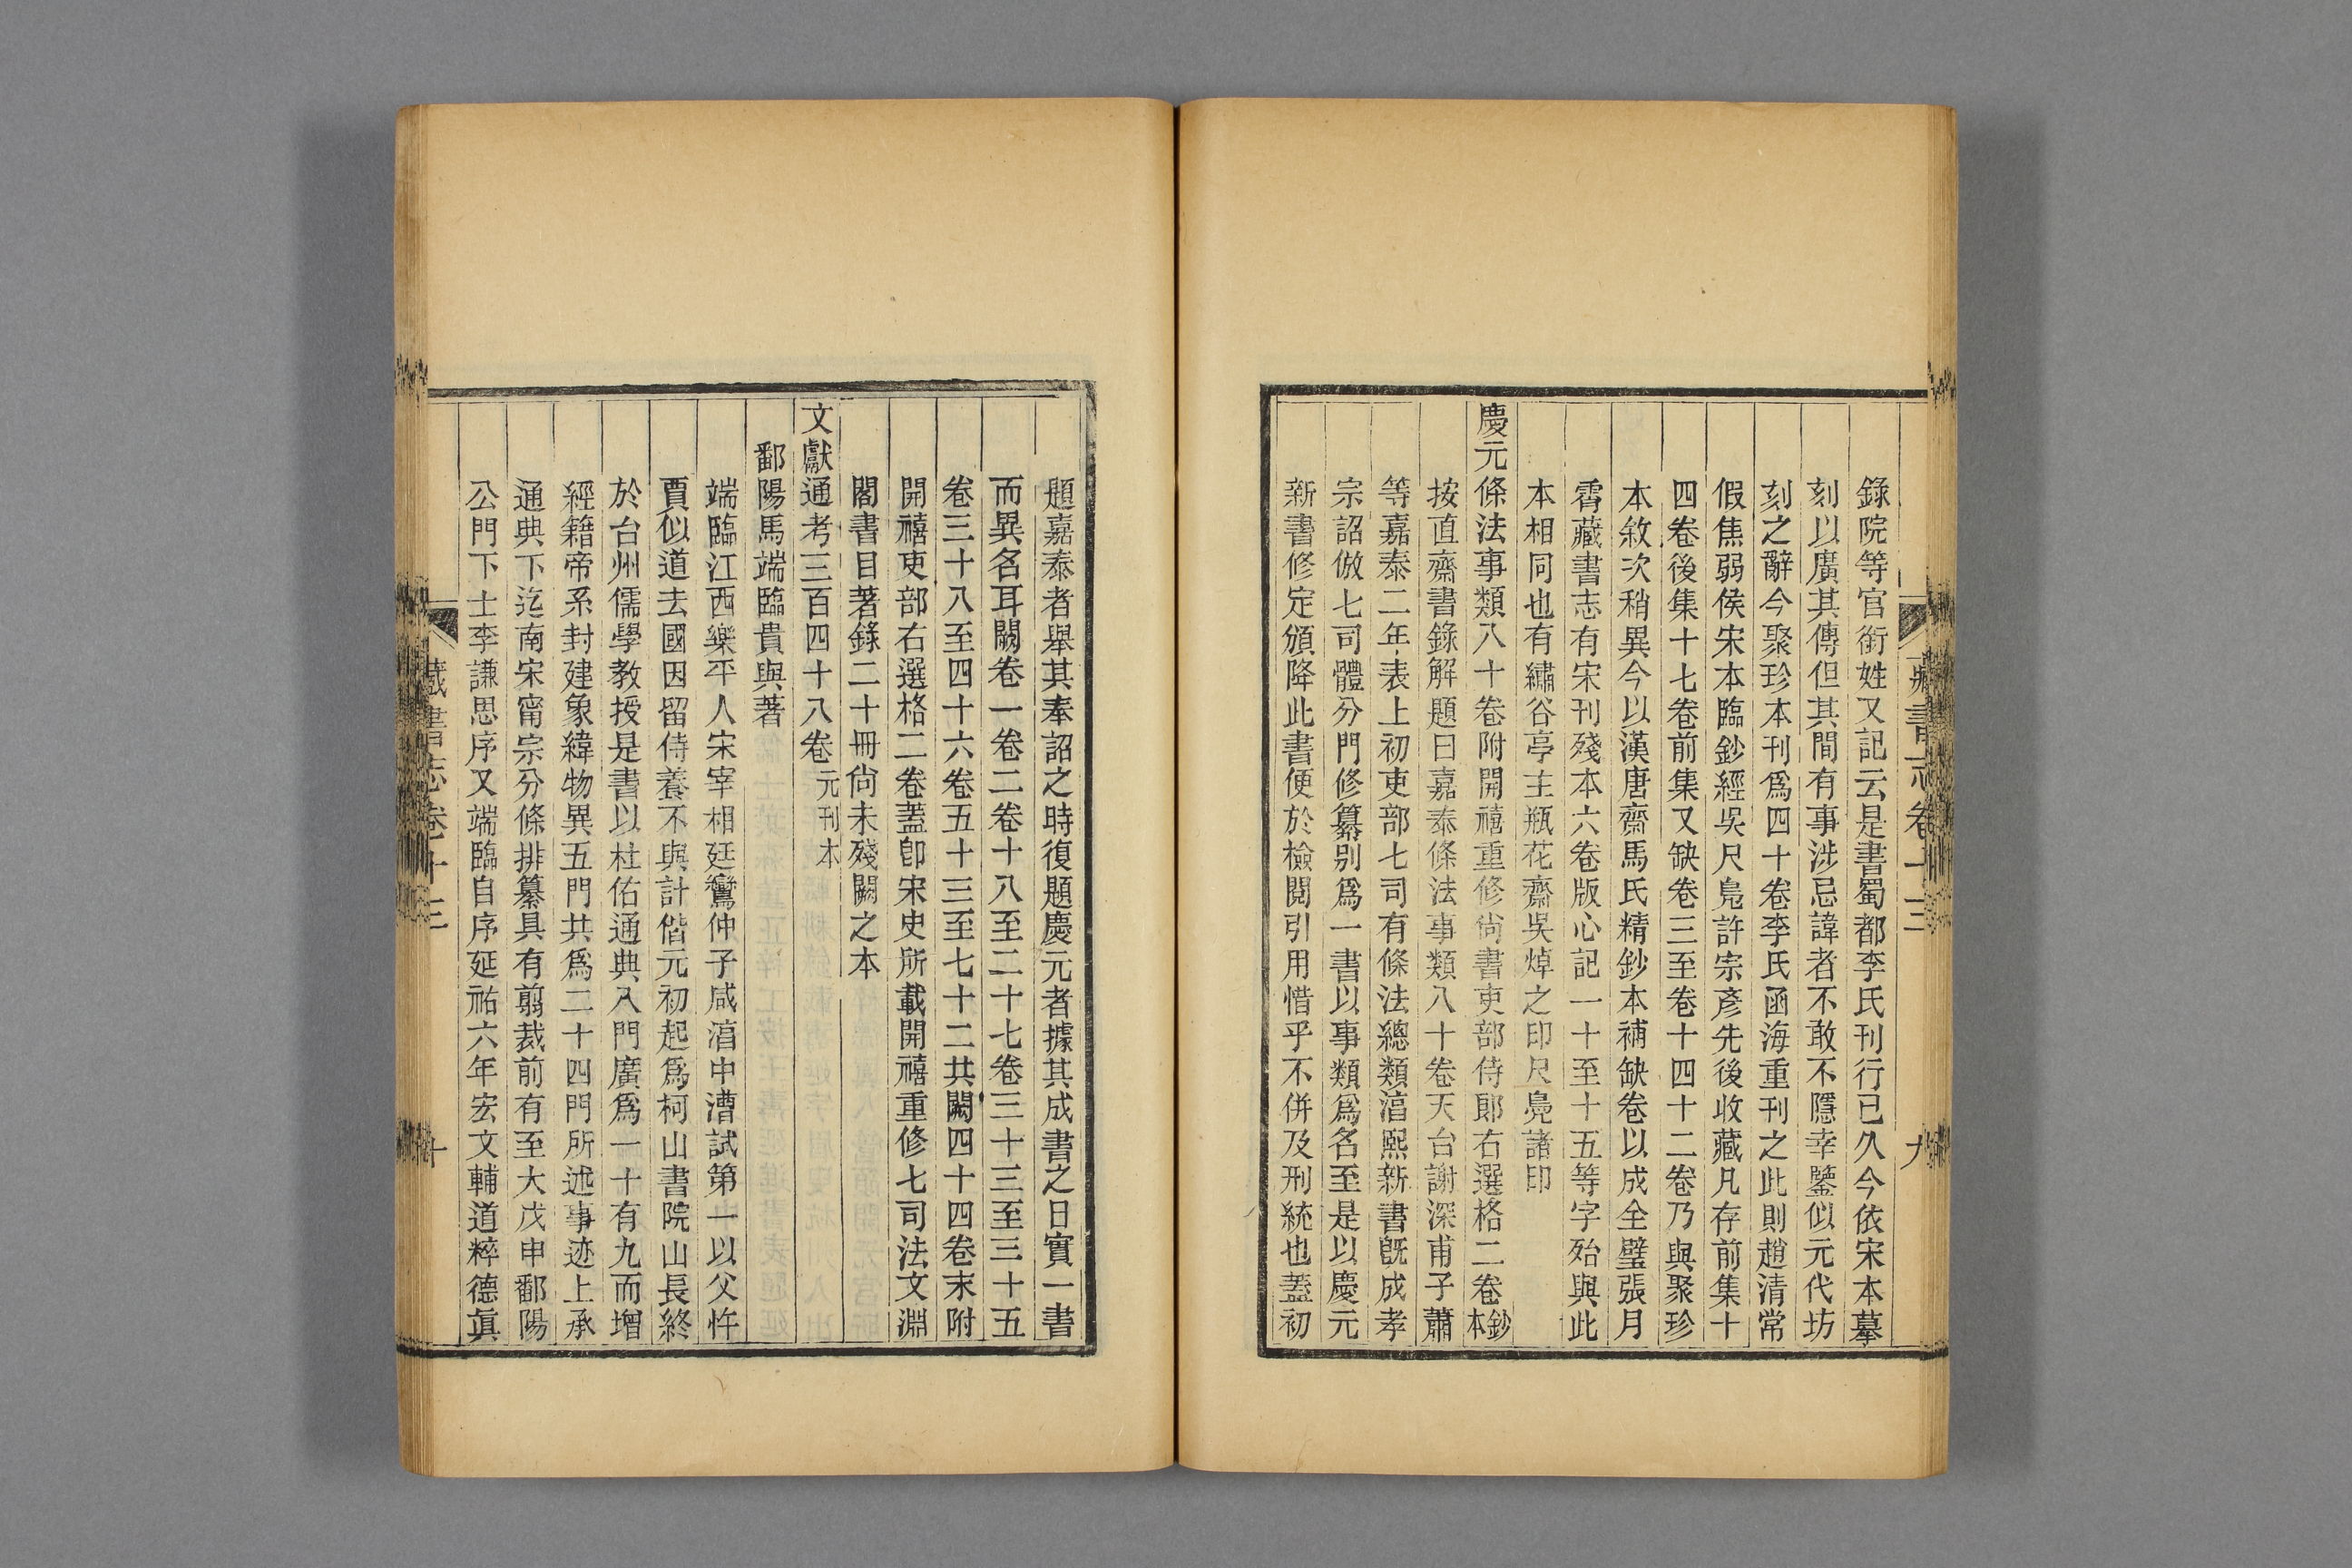 藏書志卷十三
九
錄院等官銜姓又記云是書蜀都李氏刊行已久今依宋本摹
刻以廣其傳但其間有事涉忌諱者不敢不隱幸鑒似元代坊
刻之辭今聚珍本刊爲四十卷李氏函海重刊之此則趙清常
假焦弱侯宋本臨鈔經吳尺鳧許宗彥先後收藏凡存前集十
四卷後集十七卷前集又缺卷三至卷十四十二卷乃與聚珍
本敘次稍異今以漢唐齋馬氏精鈔本補缺卷以成全璧張月
霄藏書志有宋刊殘本六卷版心記一十至十五等字殆與此
本相同也有繡谷亭主瓶花齋吳焯之印尺鳧諸印
慶元條法事類八十卷附開禧重修尙書吏部侍郞右選格二卷鈔本
按直齋書錄解題曰嘉泰條法事類八十卷天台謝深甫子蕭
等嘉泰二年表上初吏部七司有條法總類湻熙新書旣成孝
宗詔倣七司體分門修纂别爲一書以事類爲名至是以慶元
新書修定頒降此書便於檢閱引用惜乎不併及刑統也蓋初
題嘉泰者舉其奉詔之時復題慶元者據其成書之日實一書
而異名耳闕卷一卷二卷十八至二十七卷三十三至三十五
卷三十八至四十六卷五十三至七十二共闕四十四卷末附
開禧吏部右選格二卷蓋卽宋史所載開禧重修七司法文淵
閣書目著錄二十冊尙未殘闕之本
文獻通考三百四十八卷元刊本
鄱陽馬端臨貴與著
端臨江西樂平人宋宰相廷鸞仲子咸湻中漕試第一以父忤
賈似道去國因留侍養不與計偕元初起爲柯山書院山長終
於台州儒學教授是書以杜佑通典八門廣爲一十有九而增
經籍帝系封建象緯物異五門共爲二十四門所述事迹上承
通典下迄南宋甯宗分條排纂具有翦裁前有至大戊申鄱陽
公門下士李謙思序又端臨自序延祐六年宏文輔道粹德眞
藏書志卷十三
十